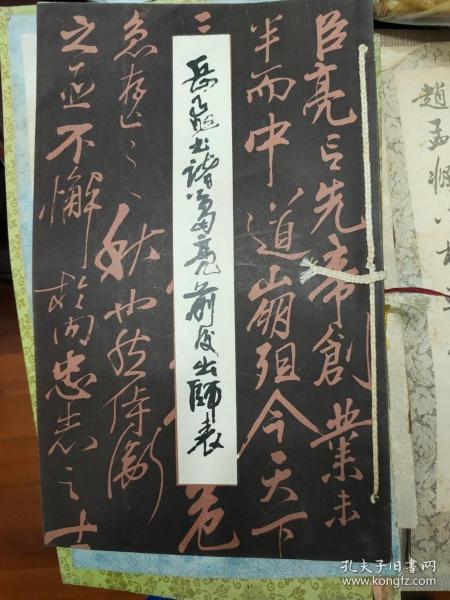 臣亮言先帝創業未
半而中道崩殂今天下
三
危
急存亡之秋也然侍衛
之臣不懈於内忠志之士
岳飛書諸葛亮前後出師表
趙孟頫
孔夫子旧书网
www.kongfz.com